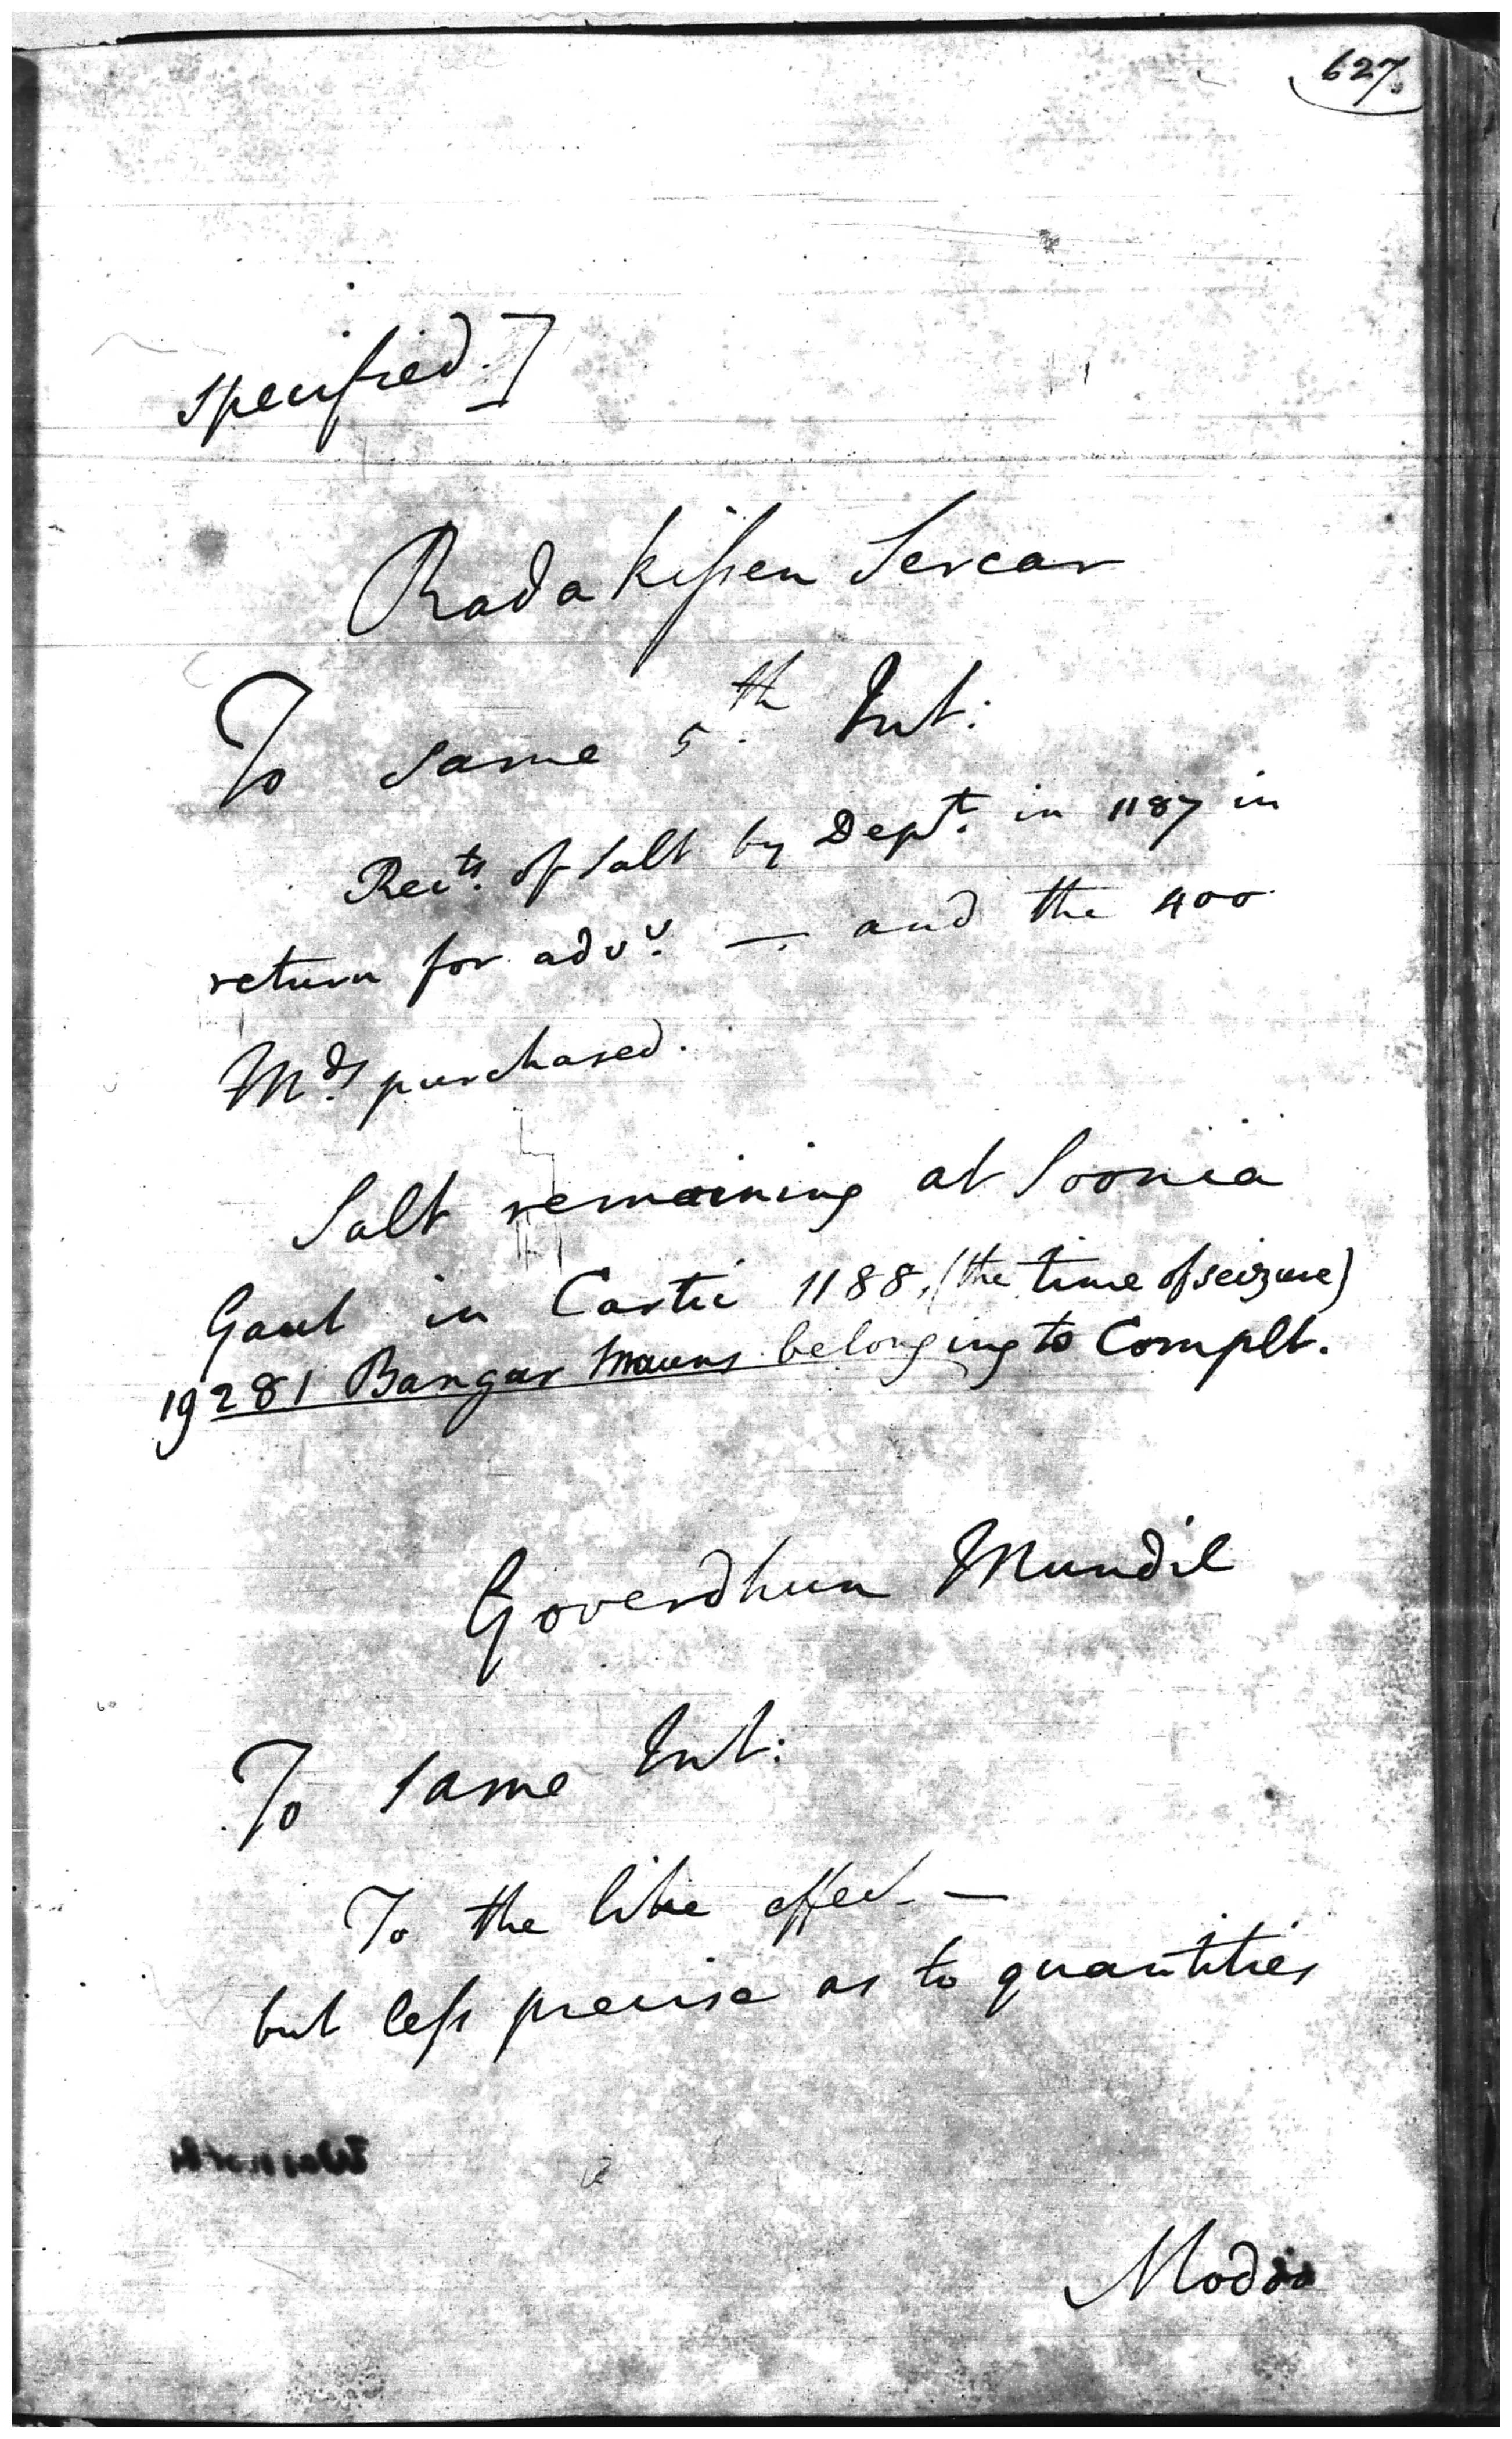 627.
specified.]
Radakissen Sercar
To same 5.th Int:
Rects. of Salt by Dept. in 1187 in
return for advs. — and the 400
Mds. purchased.
Salt remaining at Soonia
Gaut in Cartic 1188, (the time of seizure)
19281 Bangar Mauns belonging to Complt.
Goverdhun Mundil
To same Int:
To the like effect —
but less precise as to quantities
Modoo